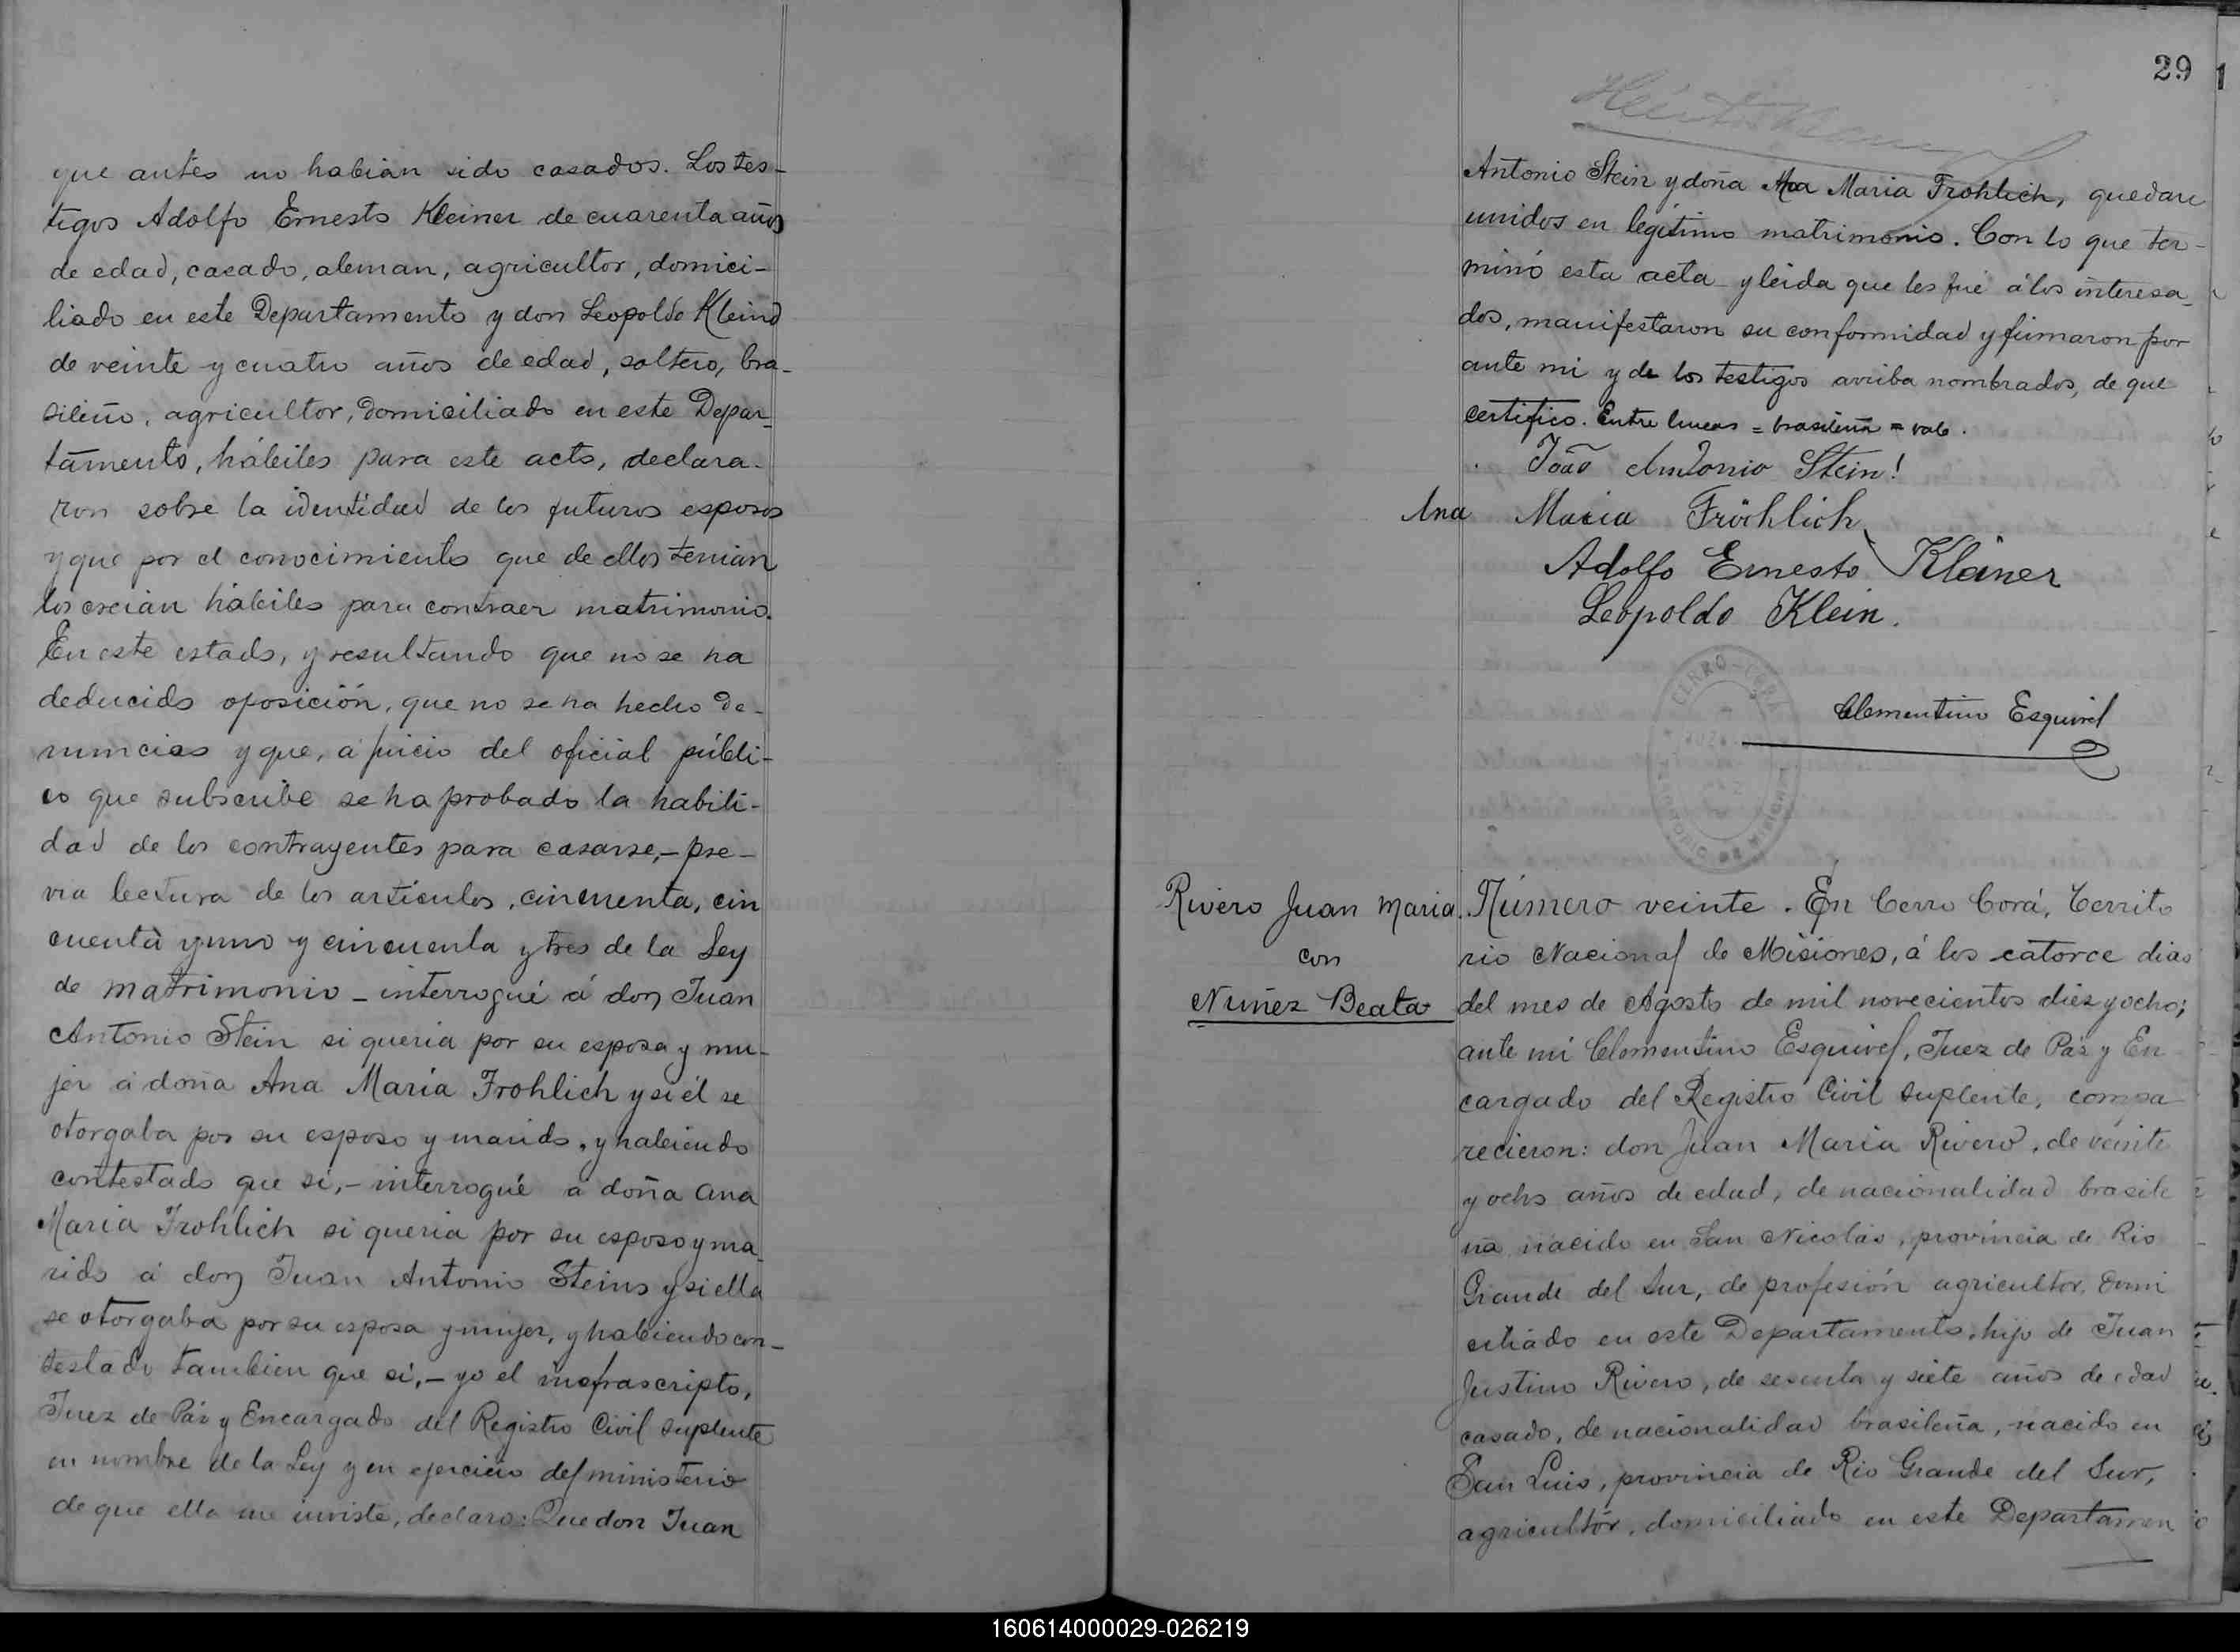 que antes no habian sido casados. Los tes-
tigos Adolfo Ernesto Kleiner de cuarenta años
de edad, casado, aleman, agricultor, domici-
liado en este Departamento y don Leopoldo Klein
de veinte y cuatro años de edad, soltero, bra-
sileño, agricultor, domiciliado en este Depar-
tamento, hábiles para este acto, declara-
ron sobre la identidad de los futuros esposos
y que por el conocimiento que de ellos tenian
los creian hábiles para contraer matrimonio.
En este estado, y resultando que no se ha
deducido oposición, que no se ha hecho de-
nuncias y que, á juicio del oficial públi-
co que subscribe se ha probado la habili-
dad de los contrayentes para casarse,- pre-
via lectura de los artículos, cincuenta, cin
cuenta y uno y cincuenta y tres de la Ley
de matrimonio - interrogué á don Juan
Antonio Stein si queria por su esposa y mu-
jer á doña Ana María Frohlich y si él se
otorgaba por su esposo y marido, y habiendo
contestado que si,- interrogué á doña Ana
Maria Frohlich si queria por su esposo y ma-
rido á don Juan Antonio Steins y si ella
se otorgaba por su esposa y mujer, y habiendo con-
testado tambien que si,- yo el infrascripto,
Juez de Páz y Encargado del Registro Civil suplente
en nombre de la Ley y en ejercicio del ministerio
de que ella me inviste, declaro: Que don Juan
29
Antonio Stein y doña Ana Maria Frohlich, quedan
unidos en legítimo matrimonio. Con lo que ter-
minó esta acta y leida que les fué á los interesa-
dos, manifestaron su conformidad y firmaron por
ante mi y de los testigos arriba nombrados, de que
certifico. Entre lineas = brasileña = vale.
João Antonio Stein!
Ana Maria Fröhlich
Adolfo Ernesto Kleiner
Leopoldo Klein.
CERRO-CORÁ
Clementino Esquivel
Rivero Juan Maria
con
Nuñez Beata
Número veinte. En Cerro Corá, Territo
rio Nacional de Misiones, á los catorce dias
del mes de Agosto de mil novecientos diez y ocho;
ante mi Clementino Esquivel, Juez de Páz y En
cargado del Registro Civil suplente, compa
recieron: don Juan Maria Rivero, de veinte
y ocho años de edad, de nacionalidad brasile
ña nacido en San Nicolás, provincia de Rio
Grande del Sur, de profesión agricultor, domi
ciliado en este Departamento, hijo de Juan
Justino Rivero, de sesenta y siete años de edad
casado, de nacionalidad brasileña, nacido en
San Luis, provincia de Rio Grande del Sur,
agricultór, domiciliado en este Departamen
160614000029-026219